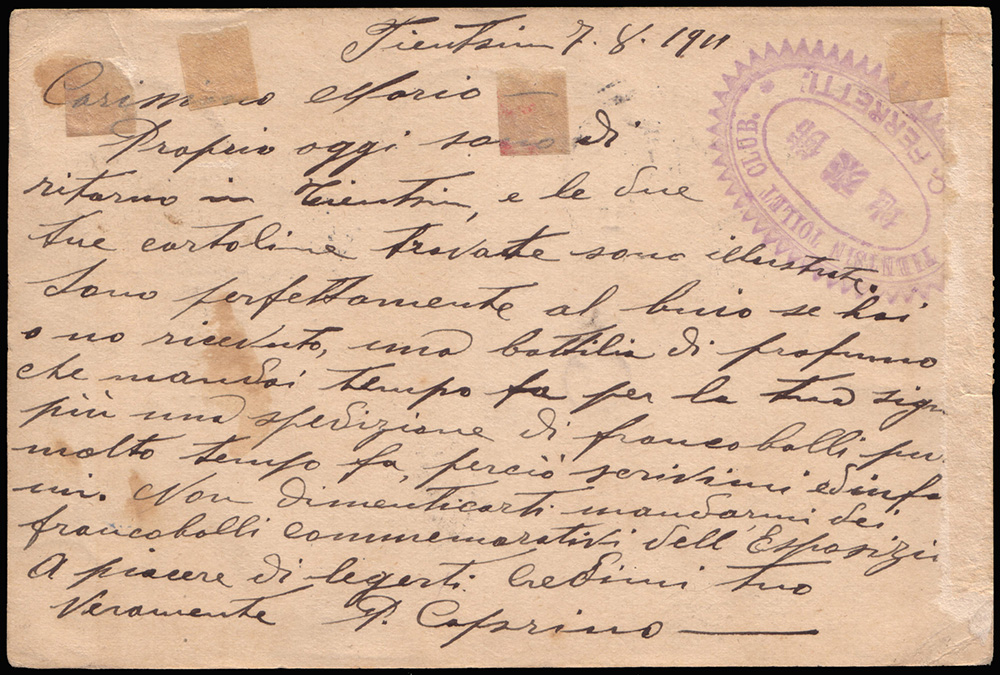 Tientsin 7. 8. 1911
Carissimo Mario
Proprio oggi sono di
ritorno in Tientsin, e le due
tue cartoline trovatte sono illustrate.
Sono perfettamente al buio se hai
o no ricevuto, una bottilia di profumo
che mandai tempo fa per la tua sign
più una spedizione di francobolli pu
molto tempo fa, perciò scrivimi ed info
mi. Non dimenticarti mandarmi dei
francobolli commemorativi dell'Esposizi
A piacere di legerti. Credimi tuo
Veramente P. Caprino
TIENTSIN TOILET CLUB.
FERRETTI.